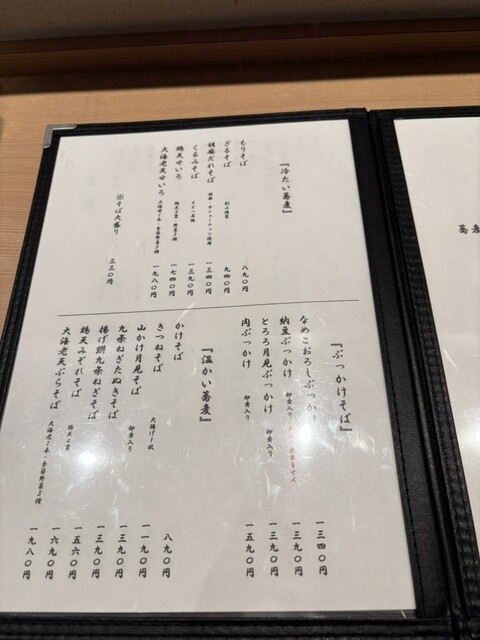 『冷たい蕎麦』
もりそば 八九〇円
ざるそば 刻み海苔 九四〇円
胡麻だれそば 胡麻・カシューナッツ使用 一三四〇円
くるみそば 一三九〇円
鶏天せいろ 一七四〇円
大海老天せいろ 大海老1本・季節野菜3種 一九八〇円
※そば大盛り 三三〇円
『ぶっかけそば』
なめこおろしぶっかけ 一三四〇円
納豆ぶっかけ 卵黄入り 一三九〇円
とろろ月見ぶっかけ 卵黄入り 一三九〇円
肉ぶっかけ 卵黄入り 一五九〇円
『温かい蕎麦』
かけそば 八九〇円
きつねそば 大揚げ1枚 一一九〇円
山かけ月見そば 卵黄入り 一三九〇円
九条ねぎたぬきそば 一三九〇円
揚げ餅九条ねぎそば 一五六〇円
鶏天みぞれそば 一六九〇円
大海老天ぷらそば 大海老1本・季節野菜3種 一九八〇円
蕎麦